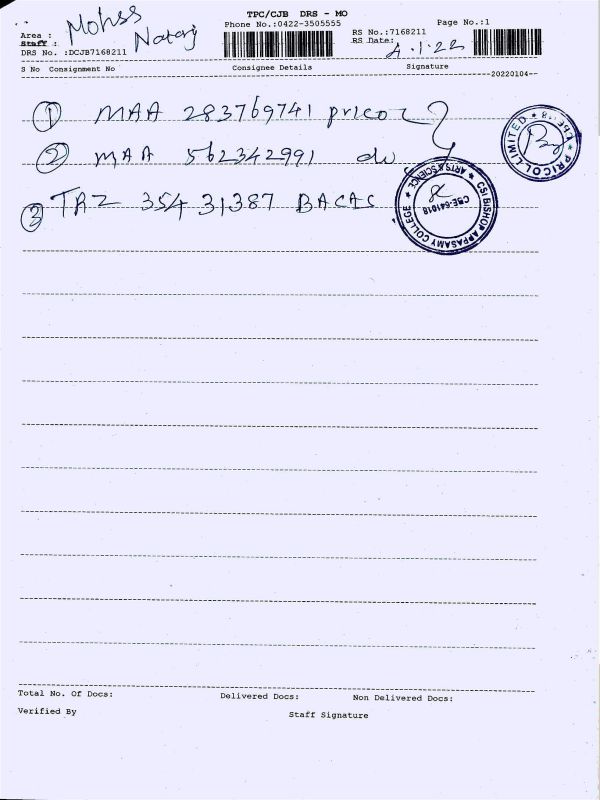 TPC/CJB DRS - MO
Phone No.:0422-3505555
Page No.:1
Area :
Staff :
DRS No. :DCJB7168211
Mohss
Nataraj
RS No.:7168211
RS Date:
4.1.22
S No Consignment No
Consignee Details
Signature
--20220104--
1 MAA 283769741 pricol
2 MAA 562342991 do
3 TAZ 35431387 BACAS
PRICOL LIMITED
CSI BISHOP APPASAMY COLLEGE
ARTS & SCIENCE
CBE-641018
Total No. Of Docs:
Delivered Docs:
Non Delivered Docs:
Verified By
Staff Signature